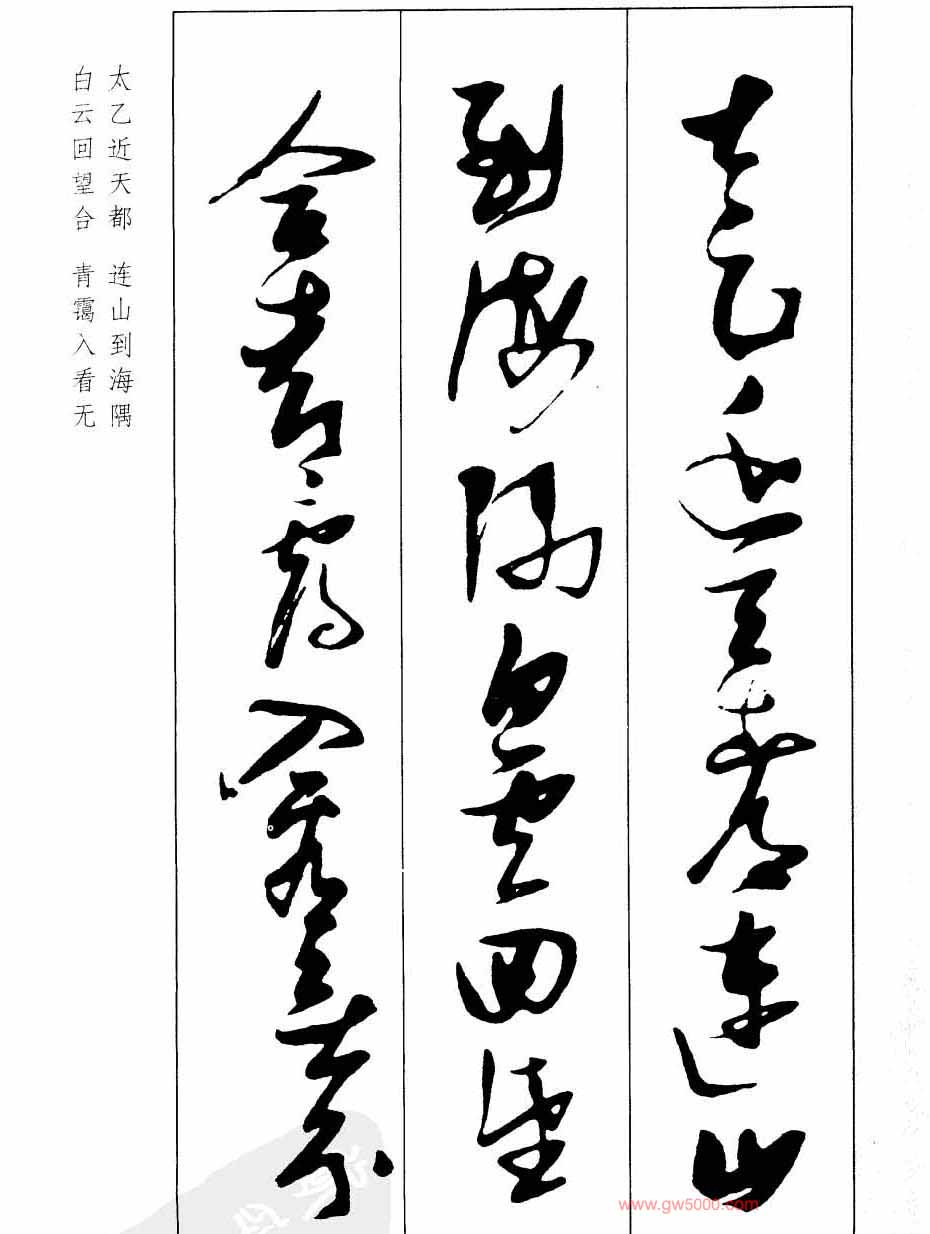 太乙近天都連山
到海隅白雲回望
合青靄入看無
太乙近天都 连山到海隅
白云回望合 青霭入看无
www.gw5000.com